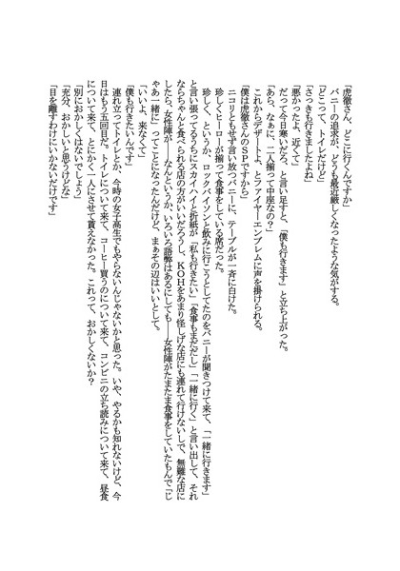 「虎徹さん、どこに行くんですか」
　バニーの追求が、どうも最近厳しくなったような気がする。
「どこって、トイレだけど」
「さっきも行きましたよね」
「悪かったよ、近くて」
　だって今日寒いだろ、と言い足すと、「僕も行きます」と立ち上がった。
「あら、なぁに、二人揃って中座なの？」
　これからデザートよ、とファイヤーエンブレムに声を掛けられる。
「僕は虎徹さんのＳＰですから」
　ニコリともせず言い放つバニーに、テーブルが一斉に白けた。
　珍しくヒーローが揃って食事をしている席だった。
　珍しく、というか、ロックバイソンと飲みに行こうとしてたのをバニーが聞きつけて来て、「一緒に行きます」
と言い張ってるうちにスカイハイと折紙が「私も行きたい」「食事もまだだし」「一緒に行く」と言い出して、それ
ならちゃんと食べられる店の方がいいだろうし、ＫＯＨをあまり怪しげな店にも連れて行けないしで、無難な店に
したら、女性陣が――なんというか、いろいろ語弊はあるにしても――女性陣がたまたま食事をしていたもんで「じ
ゃあ一緒に」ってことになったんだけど、まぁその辺はいいとして。
「いいよ、来なくて」
「僕も行きたいんです」
　連れ立ってトイレとか、今時の女子高生でもやらないんじゃないかと思った。いや、やるかも知れないけど、今
日はもう五回目だ。トイレについて来て、コーヒー買うのについて来て、コンビニの立ち読みについて来て、昼食
について来て、とにかく一人にさせて貰えなかった。これって、おかしくないか？
「別におかしくはないでしょう」
「充分、おかしいと思うけどな」
「目を離すわけにいかないだけです」